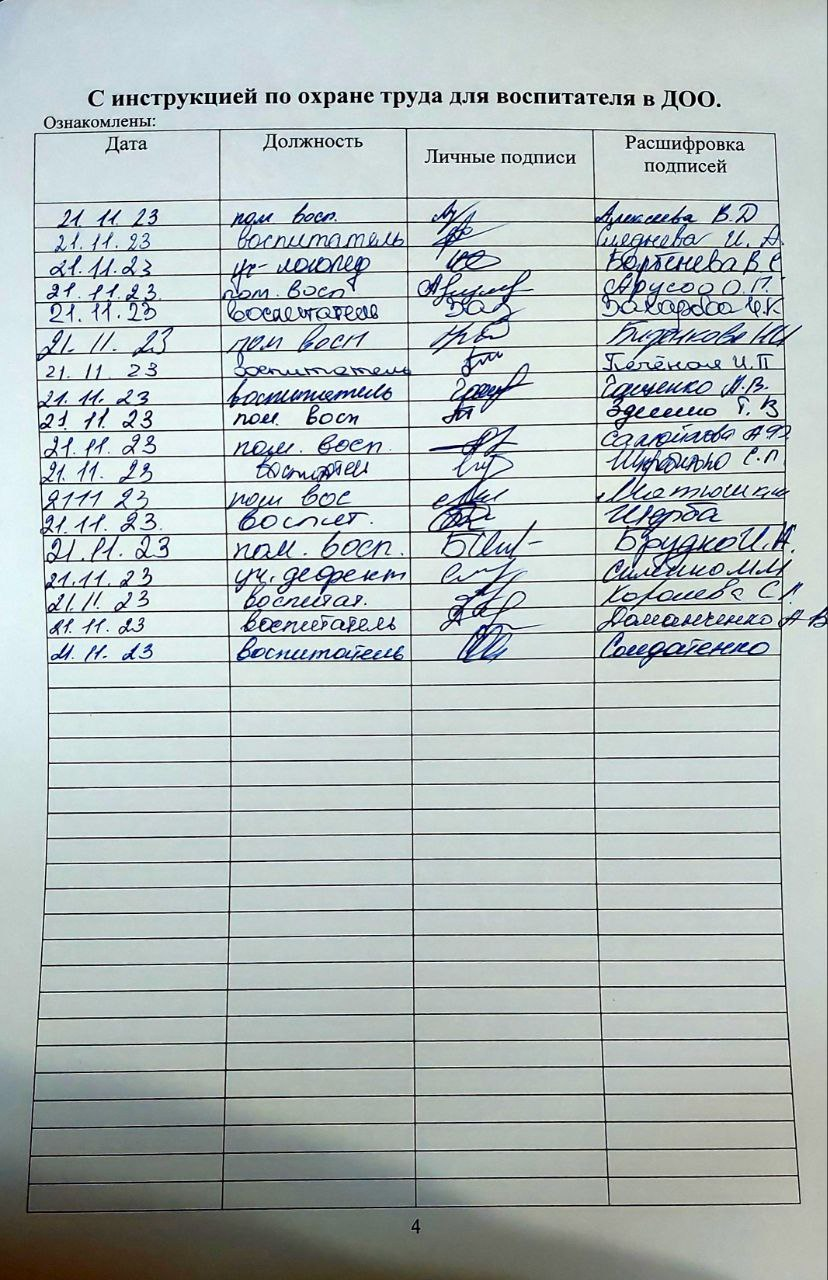 С инструкцией по охране труда для воспитателя в ДОО.
Ознакомлены:
Дата Должность Личные подписи Расшифровка подписей
21.11.23 пом восп. Алексеева В.Д
21.11.23 воспитатель И.А.
21.11.23 уч-логопед Бортенева В.С
21.11.23 пом. восп О.П.
21.11.23 воспитатель Захарова
21.11.23 пом восп
21.11.23 воспитатель Печёная И.П
21.11.23 воспитатель Гащенко
21.11.23 пом. восп Т.В
21.11.23 пом. восп.
21.11.23 С.П.
2111 23 пом вос Матюшкин
21.11.23. воспит. Щерба
21.11.23 пом. восп. Брудко И.А.
21.11.23 уч. дефект
21.11.23 воспитат. Королева С.
21.11.23 воспитатель Доманченко А В
21.11.23 воспитатель Солдатенко
4